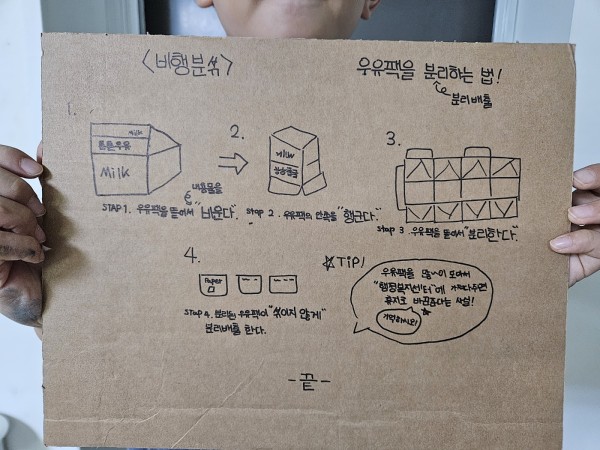 <비행분섞>
우유팩을 분리하는 법!
분리배출
1.
Milk
튼튼우유
Milk
내용물을
STAP 1. 우유팩을 뜯어서 "비운다".
2.
Milk
Stap 2. 우유팩의 안쪽을 "헹군다".
3.
Stap 3. 우유팩을 뜯어서 "분리한다".
4.
Paper
Stap 4. 분리된 우유팩이 "섞이지 않게"
분리배출 한다.
☆TiP!
우유팩을 많이 모아서
"행정복지센터"에 가져다주면
휴지로 바꿔준다는 사실!
기억하시오!
-끝-